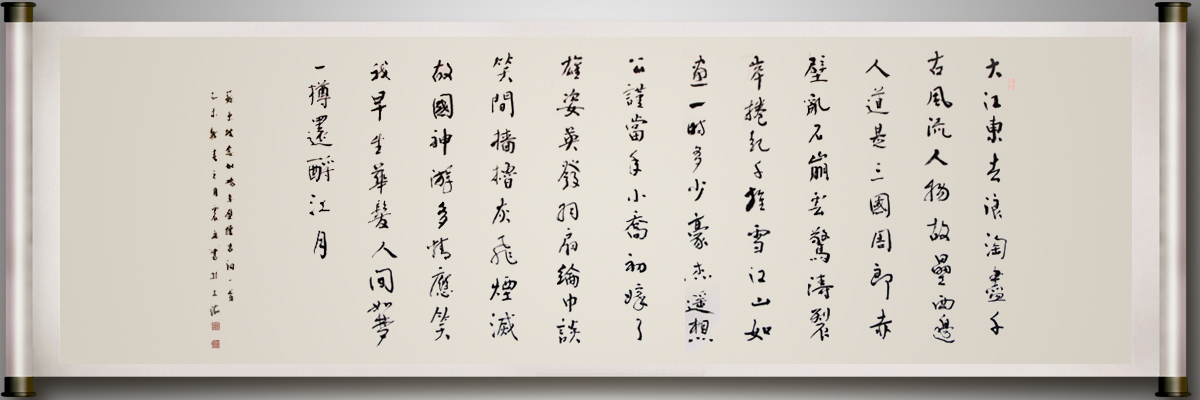 大江東去浪淘盡千
古風流人物故壘西邊
人道是三國周郎赤
壁亂石崩雲驚濤裂
岸捲起千堆雪江山如
畫一時多少豪杰遥想
公謹當年小喬初嫁了
雄姿英發羽扇綸巾談
笑間檣櫓灰飛煙滅
故國神游多情應笑
我早生華髮人間如夢
一樽還酹江月
蘇東坡念奴嬌赤壁懷古詞一首
乙未 書於上海